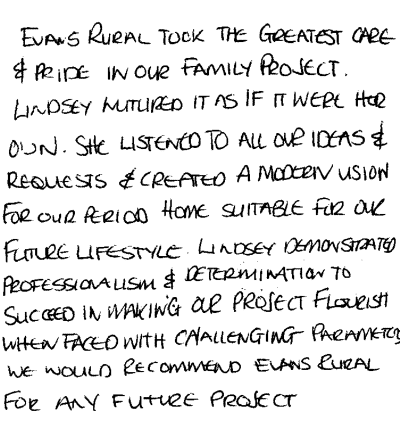 EVANS RURAL TOOK THE GREATEST CARE
& PRIDE IN OUR FAMILY PROJECT.
LINDSEY NUTURED IT AS IF IT WERE HER
OWN. SHE LISTENED TO ALL OUR IDEAS &
REQUESTS & CREATED A MODERN VISION
FOR OUR PERIOD HOME SUITABLE FOR OUR
FUTURE LIFESTYLE. LINDSEY DEMONSTRATED
PROFESSIONALISM & DETERMINATION TO
SUCCEED IN MAKING OUR PROJECT FLOURISH
WHEN FACED WITH CHALLENGING PARAMETERS
WE WOULD RECOMMEND EVANS RURAL
FOR ANY FUTURE PROJECT